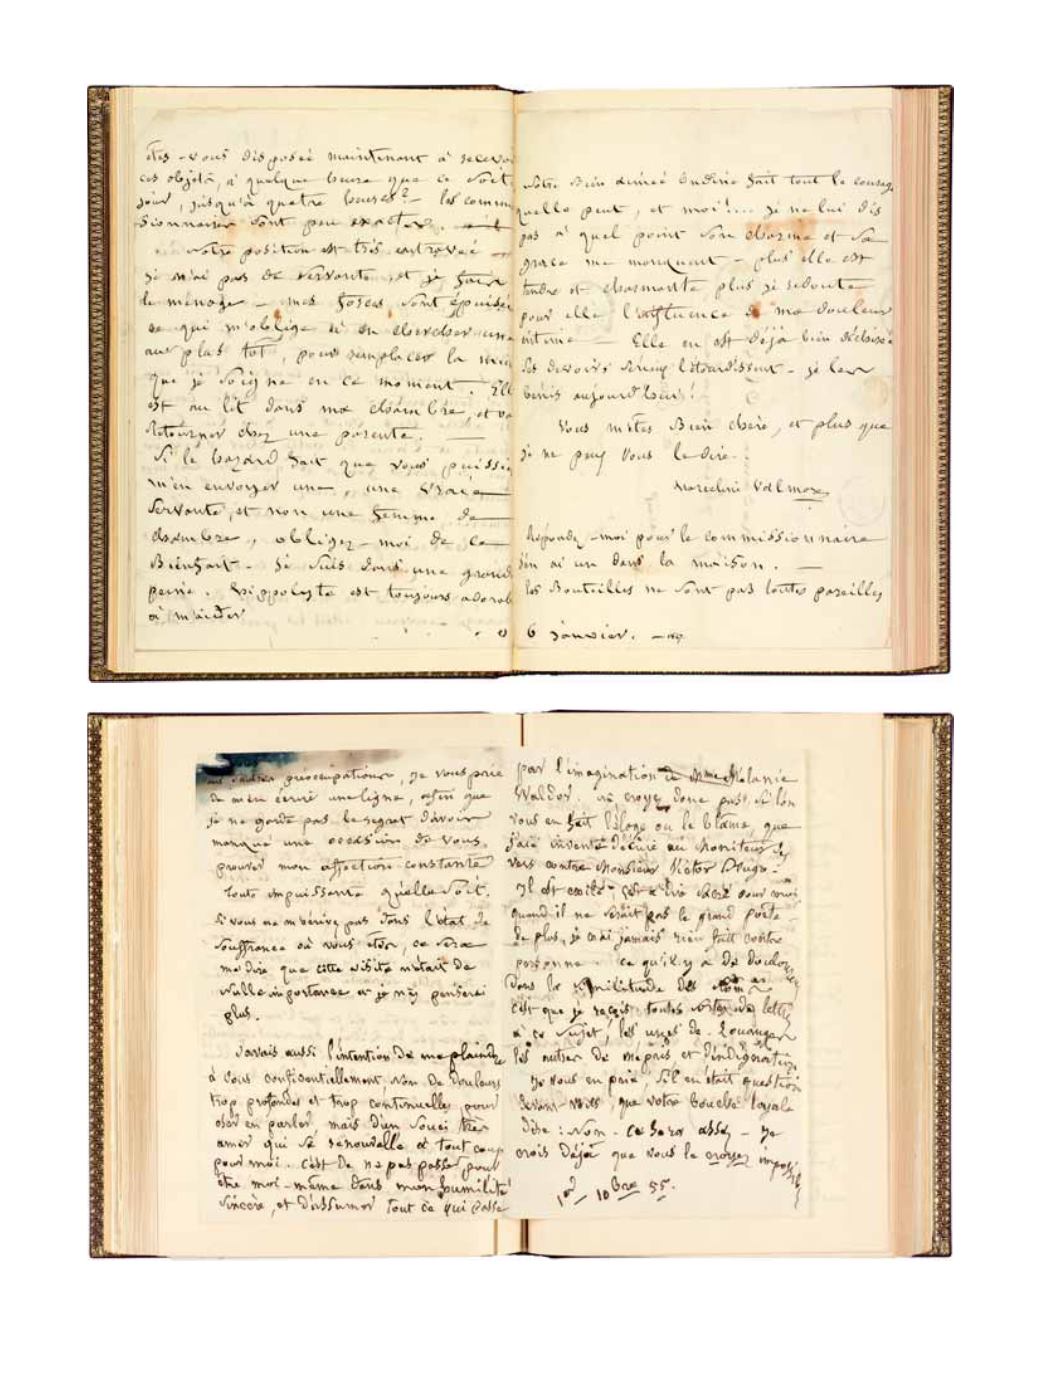 êtes-vous disposée maintenant à recevoi
ces objets, à quelque heure que ce soit
jour, jusqu'à quatre heures? – les commi
sionnaires sont peu exacts.
Notre position est très entravée
je n'ai pas de servante, et je fais
le ménage – mes forces sont épuisée
ce qui m'oblige à en chercher une
au plus tôt, pour remplacer la mie
que je soigne en ce moment. Ell
est au lit dans ma chambre, et va
retourner chez une parente. —
Si le hazard fait que vous puissi
m'en envoyer une, une vraie
servante, et non une femme de
chambre, obligez-moi de ce
Bienfait. Je suis dans une grand
peine. Hippolyte est toujours adorab
à m'aider
Votre Bien aimée Ondine fait tout le courage
quelle peut, et moi!... je ne lui dis
pas à quel point son charme et sa
grace me manquent – plus elle est
tendre et charmante plus je redoute
pour elle l'influence de ma douleur
intime — Elle en est déjà bien
Ses devoirs sérieux l'étourdissent – je les
bénis aujourd'hui!
Vous m'êtes Bien chère, et plus que
je ne puis vous le dire.
Marceline Valmore
Répondez-moi pour le commissionnaire
j'en ai un dans la maison. —
les Bouteilles ne sont pas toutes pareilles
6 janvier.
préoccupations, je vous prie
de m'en écrire une ligne, afin que
je ne garde pas le regret d'avoir
manqué une occasion de vous
prouver mon affection constante
toute impuissante qu'elle soit.
Si vous ne m'écrivez pas dans l'état de
souffrance où vous êtes, ce sera
me dire que cette visite n'était de
nulle importance et je n'y penserai
plus.
J'avais aussi l'intention de me plaindre
à vous confidentiellement, non de douleurs
trop profondes et trop continuelles pour
oser en parler, mais d'un souci très
amer qui se renouvelle à tout coup
pour moi. c'est de ne pas passer pour
être moi-même dans mon humilité
sincère, et d'assumer tout ce qui passe
par l'imagination de Mme Mélanie
Waldor. ne croyez donc pas, si l'on
vous en fait l'éloge ou le blâme, que
j'aie inventé d'écrire au Moniteur des
vers contre Monsieur Victor Hugo.
Il est exilé; c'est à dire sacré pour moi
quand il ne serait pas le grand poète
de plus, je n'ai jamais rien fait contre
personne. Ce qu'il y a de douloureux
dans la similitude des noms
c'est que je reçois toutes sortes de lettres
à ce sujet, les unes de louanges
les autres de mépris et d'indignation
Je vous en prie, s'il en était question
devant vous, que votre bouche loyale
dise: Non. Ce sera assez – je
crois déjà que vous le croyez impossible
1er 10bre 55.